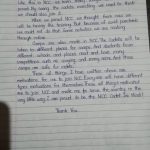 like this in NCC we have many
proud. By seeing the cadets marching we need to think
we should also join it.
When we joined NCC we thought there may
will be having the training. But because of covid pandemic
we could not do that. Some activities we are making
through online.
Camps are also made in NCC. The cadets will be
taken to different places for camps. And students from
different schools and places meet and have many
competitions such as singing, and many more. And these
camps are safe for cadets.
These all things I have written above are
motivations for me to join NCC. Everyone will have different
types motivations for themselves. These all things motivated
me to join NCC and made me to serve the country in the
very little way. I am proud to be the NCC Cadet. Jai Hind!
Thank You